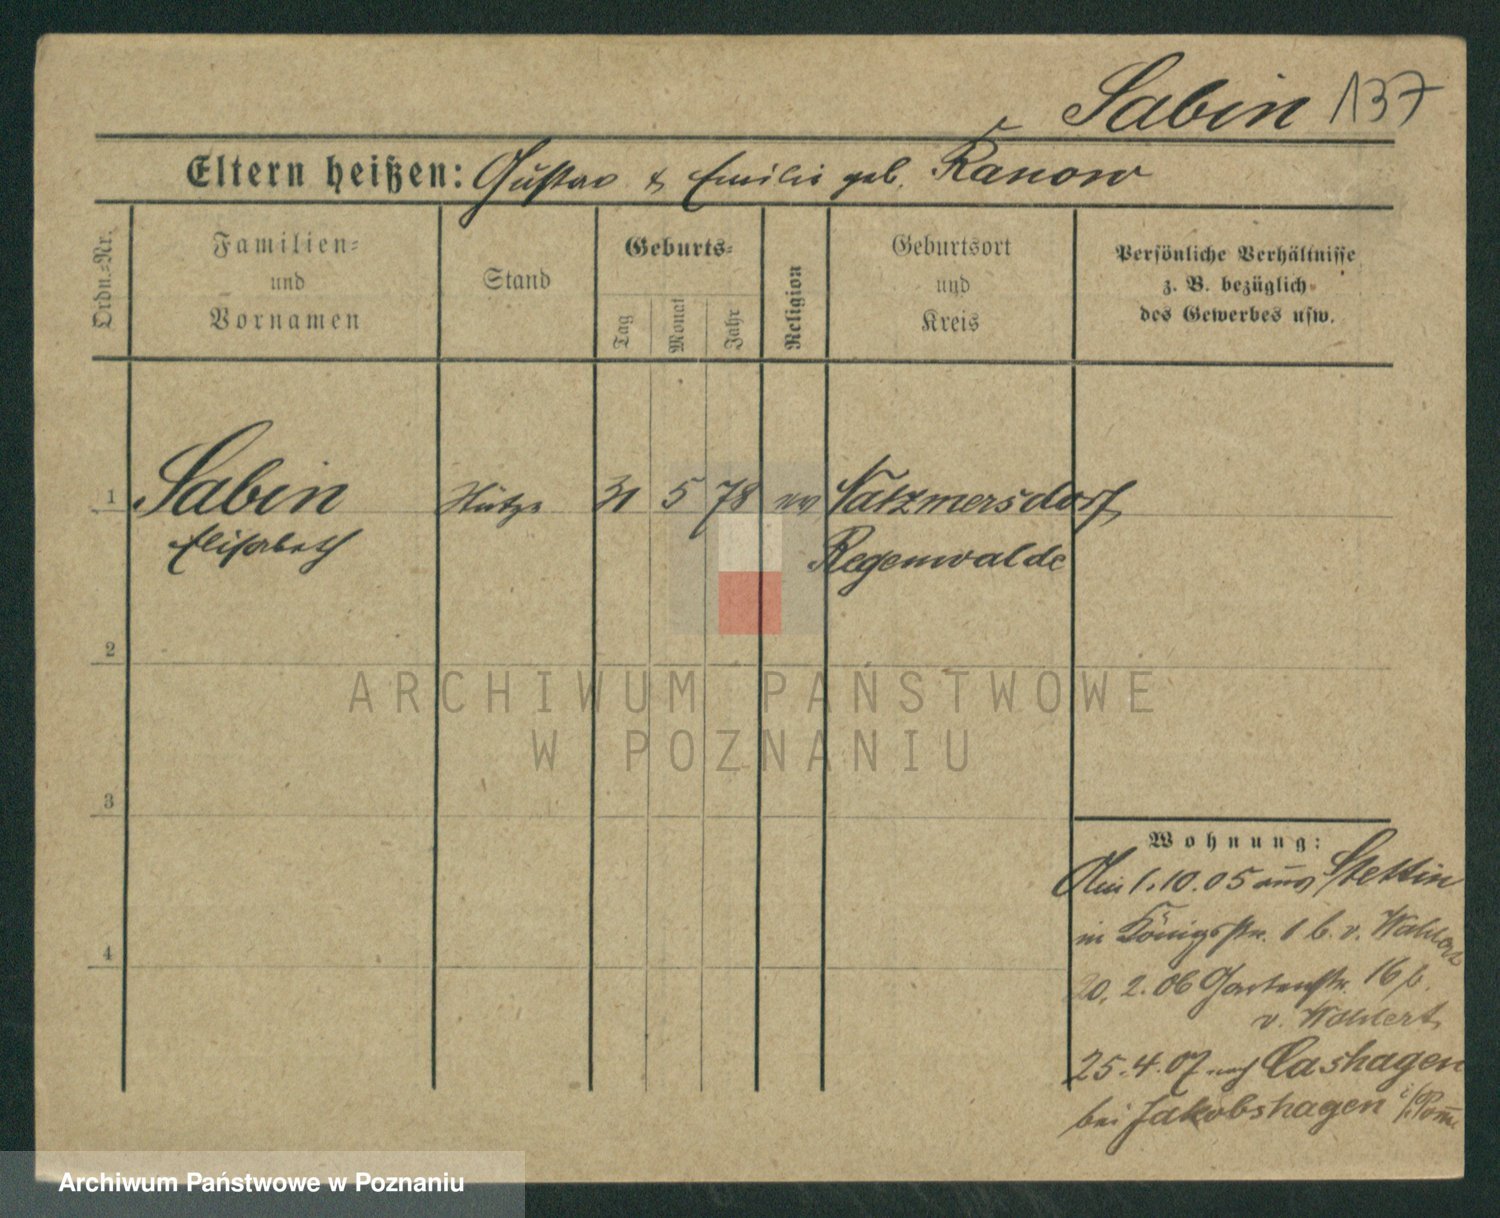 Sabin 137
Eltern heißen: Gustav & Emilie geb. Kanow
Ordn.=Nr.
Familien=
und
Vornamen
Stand
Geburts=
Tag
Monat
Jahr
Religion
Geburtsort
und
Kreis
Persönliche Verhältnisse
z. B. bezüglich
des Gewerbes usw.
1 Sabin Stütze 31 5 78 ev Natzmersdorf
Elisabeth Regenwalde
2
3
4
Wohnung:
Am 1.10.05 aus Stettin
in Königsstr. 1 b. v. Wahlert
20.2.06 Gartenstr. 16 b.
v. Wahlert
25.4.07 nach Cashagen
bei Jakobshagen i/Pom̄
ARCHIWUM PAŃSTWOWE
W POZNANIU
Archiwum Państwowe w Poznaniu